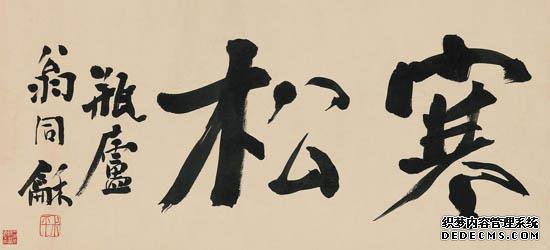 寒松
瓶廬
翁同龢
织梦内容管理系统
DEDECMS.COM